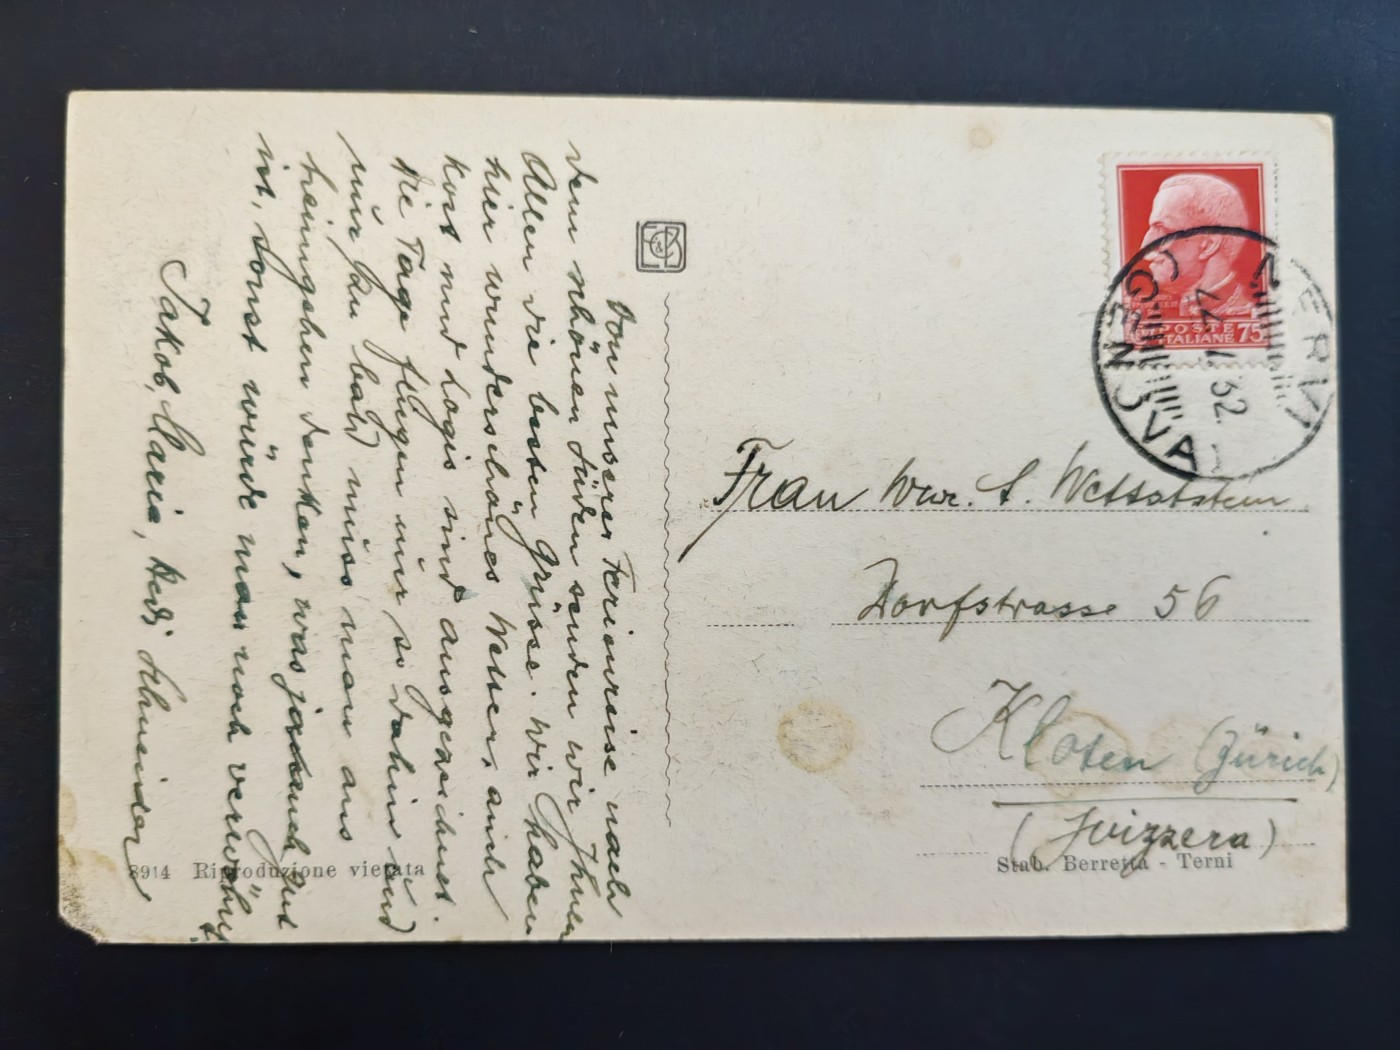 Von unserer Ferienreise nach
dem schönen Süden senden wir Ihnen
Allen die besten Grüsse. Wir haben
hier wunderschönes Wetter, auch
Kost und Logis sind ausgezeichnet.
Die Tage fliegen nur so dahin und
nur zu bald muss man ans
heimgehen denken, was ja auch gut
ist, sonst würde man noch verwöhnt
Jakob, Maria, Hedi Schneider
8914 Riproduzione vietata
POSTE
ITALIANE 75
NERVI
(GENOVA)
32
Frau Wwe. L. Wettstein
Dorfstrasse 56
Kloten (Zürich)
(Svizzera)
Stab. Berretta - Terni